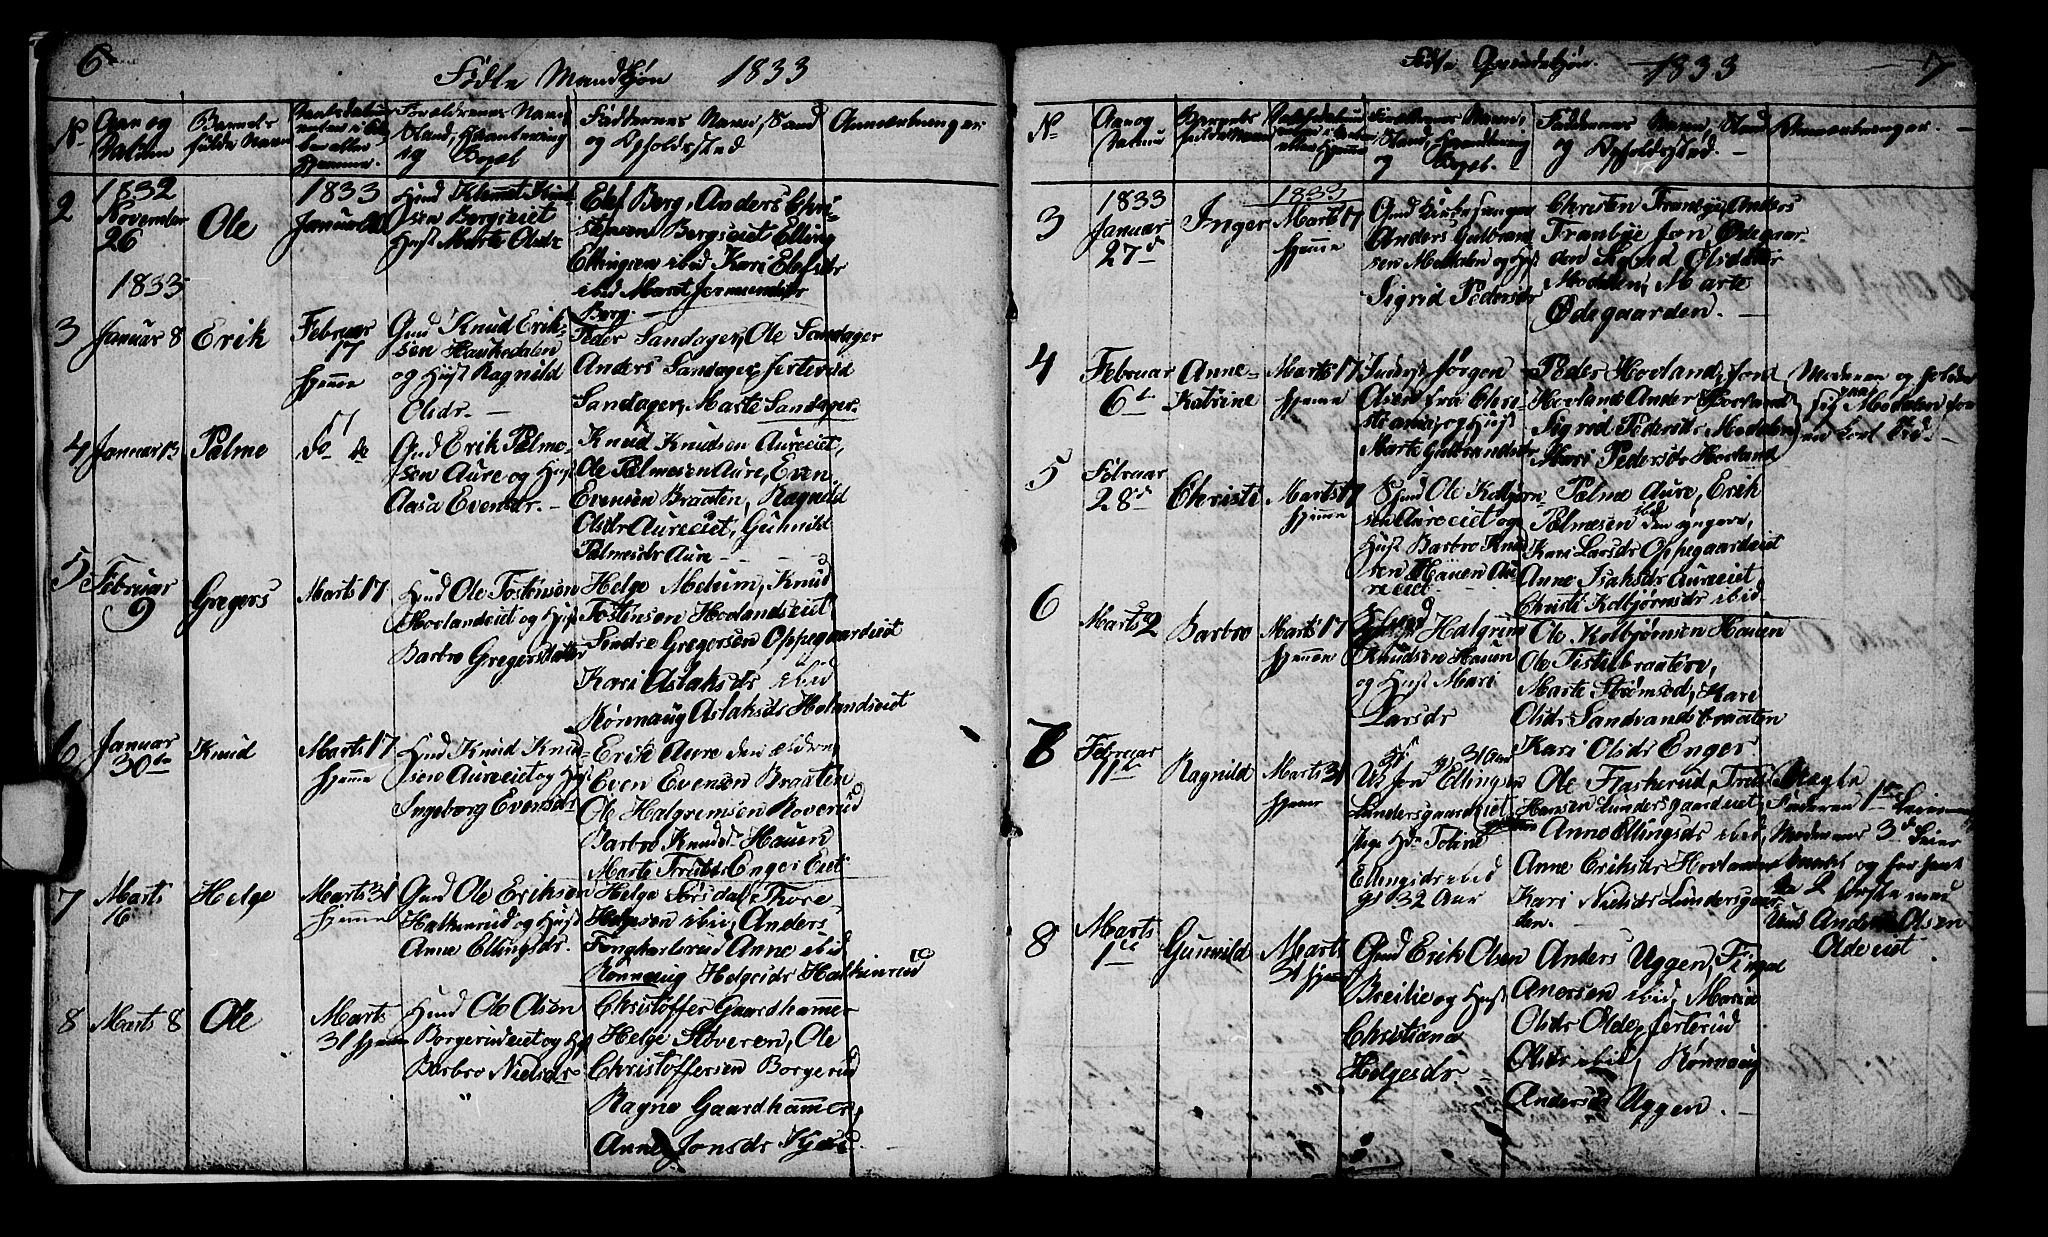 6
Fødte Mandkjøn 1833
No
Aar og
Datum
Barnets
fulde Navn
Forældrenes Navn,
Stand, Haandtering
og Bopæl
Faddernes Navn, Stand
og Opholdssted
Anmærkninger
2
1832
November
26
Ole
1833
Januar 20
Huusmd Klemet Knud
sen Bergseiet
Hust Marte Olsdr
Elef Berg, Anders Chri-
stensen Bergseiet Elling
Ellingsen ibid Kari Elefsdr
ibid Marit Jermundsdr
Berg.
1833
3
Januar 8
Erik
Februar
17
hjemme
Gmd Knud Erik-
sen Haukedalen
og Hust Ragnild
Olsdr. -
Peder Sandager, Ole Sandager
Anders Sandager, Jerterud
Sandager, Marte Sandager.
4
Januar 13
Palme
17
do do
Gmd Erik Palme-
sen Aure og Hust
Aasa Evensdr. -
Knud Knudsen Aureeiet,
Ole Palmesen Aure, Even
Evensen Braaten, Ragnild
Olsdr Aureeiet, Guhnild
Palmesdr Aure -
5
Februar
9
Gregers
Marts 17
Hmd Ole Tostensen
Hovlandeiet og Hust
Barbro Gregersdatter
Helge Melum, Knud
Tostensen Hovlandseiet
Sindre Gregersen Oppegaardeiet
Kari Aslaksdr ibid
Rønnaug Aslaksdr Hovlandseiet
6
Januar
30te
Knud
Marts 17
hjemme
Hmd Knud Knud
sen Aureeiet og Hust
Ingeborg Evensdr
Erik Aure den ældre
Even Evensen Braaten
Ole Halgrimsen Roverud
Barbro Knudsdr Hauen
Marte Trulsdr Enger Eiet
7
Marts
16
Helge
Marts 31
hjemme
Gmd Ole Eriksen
Halkinrud og Hust
Anne Ellingsdr.
Helge Sørsdal, Thore
Helgesen ibid, Anders
Anne ibid
Rønnaug Helgesdr Halkinrud
8
Marts 8
Ole
Marts
31 hjemme
Hmd Ole Olsen
Borgerudeiet og Hust
Barbro Nielsdr
Christoffer Gaardhammer
Helge Støveren, Ole
Christoffersen Borgerud
Ragne Gaardhammer,
Anne Jonsdr
Fødte Qvindekjøn. 1833
7
No
Aar og
Datum
Barnets
fulde Navn
Forældrenes Navn,
Stand, Haandtering
og Bopæl.
Faddernes Navn, Stand
og Opholdssted. -
Anmærkninger. -
3
1833
Januar
27de
Inger
1833
Marts 17
hjemme
Anders Gulbrand
sen Modalen og Hust
Sigrid Pedersdr
Christen Tranbye, Anders
Tranbye Jon Ødegaar-
den Sigrid Olsdatter
Modalen, Marte
Ødegaarden. -
4
Februar
6te
Anne-
Katrine
Marts 17
hjemme
Inderst Jørgen
Olsen fra Chri-
stiania, og Hust
Marte Gulbrandsdr
Peder Hovland, Jord
Hovland Anders Hovland
Sigrid Pedersdr Modalen
Mari Pedersdr Hovland
Moderen og
sig paa Modalen for
en kort Tid -
5
Februar
28de
Christi
Marts 17
hjemme
Hmd Ole Kolbjørn-
sen Aureeiet og
Hust Barbro Knud
sen Hauen Au
reeiet.
Palme Aure, Erik
Palmesen ibid den yngere,
Kari Larsdr Oppegaardeiet
Anne Isaksdr Aureeiet
Christi Kolbjørnsdr ibid
6
Marts 2
Barbro
Marts 17
hjemme
Halgrim
Knudsen Hauen
og Hust Mari
Larsdr
Ole Kolbjørnsen Hauen
Ole Tistelbraaten,
Marte Strømsod, Kari
Olsdr Sandvandsbraaten
Kari Olsdr Enger
7
Februar
11te
Ragnild
Marts 31
hjemme
Jon Ellingsen gl 31 Aar
Lundersgaardeiet
Pige Torine
Ellingsdr ibid
gl 32 Aar
Ole Flaskerud, Truls
Hansen Lundersgaardeiet,
Anne Ellingsdr ibid,
Anne Eriksdr Hovland
Kari Nielsdr Lundersgaar
den.
Uægte
Faderen 1ste Leiermaal
Moderens 3de Leier
maal og har havt
de 2 første med
Anders Olsen
Oldeeiet
8
Marts
1ste
Gunnild
Marts
31 hjemme
Gmd Erik Olsen
Breilie og Hust
Christiana
Helgesdr
Anders Uggen, Fingal
Anersen ibid, Maria
Olsdr Olde, Jerterud
Olsdr ibid, Rønnaug
Andersdr Uggen. -